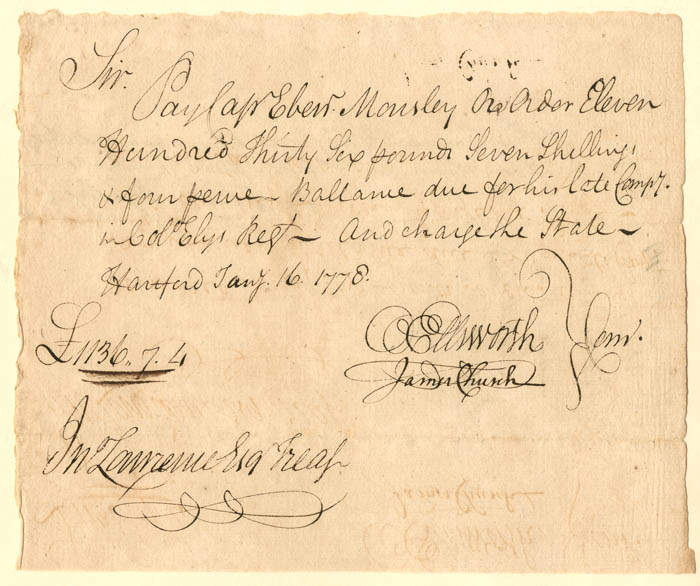 Sir.
Pay Capt Ebenr. Mousley Or Order Eleven
Hundred Thirty Six pounds Seven Shillings
& four pence — Ballance due for his late Compy.
in Colo. Elys Regt — And charge the State —
Hartford Jany. 16. 1778.
£1136.. 7. 4
OEllsworth
James Church
Com.
Jno Lawrence Esq Treasr